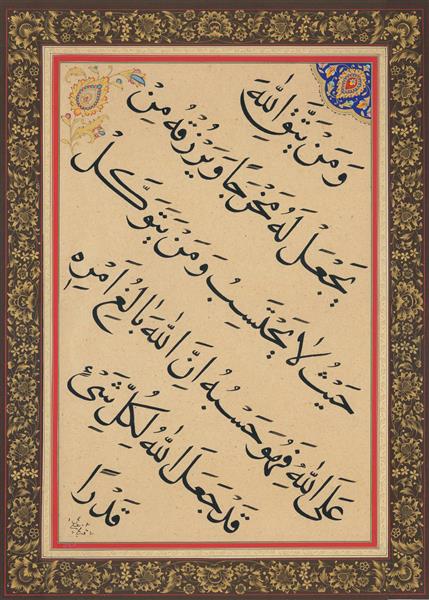 وَمَنْ يَتَّقِ اللّٰهَ
يَجْعَلْ لَهُ مَخْرَجًا وَيَرْزُقْهُ مِنْ
حَيْثُ لَا يَحْتَسِبُ وَمَنْ يَتَوَكَّلْ
عَلَى اللّٰهِ فَهُوَ حَسْبُهُ اِنَّ اللّٰهَ بَالِغُ اَمْرِهِ
قَدْ جَعَلَ اللّٰهُ لِكُلِّ شَيْءٍ
قَدْرًا